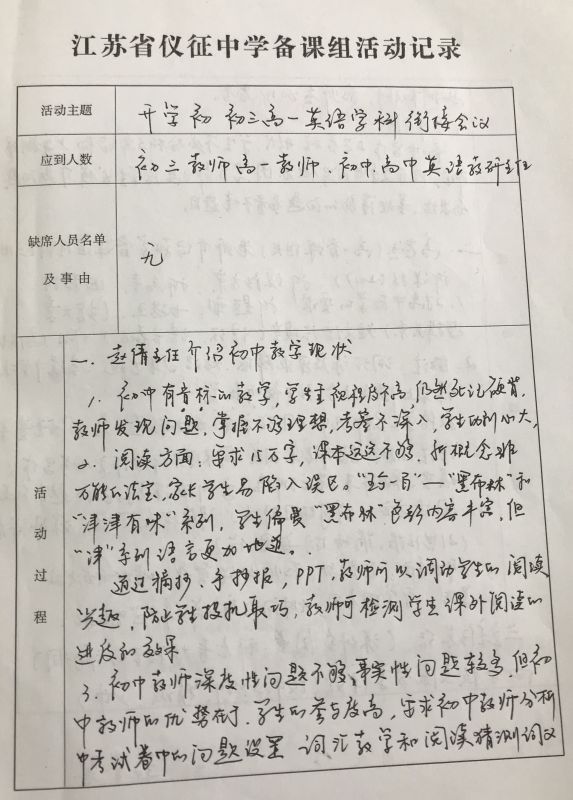 江苏省仪征中学备课组活动记录
活动主题 开学初 初三高一英语学科衔接会议
应到人数 初三教师高一教师、初中、高中英语教研主任
缺席人员名单
及事由
无
活动过程
一. 赵倩主任介绍初中教学现状
1. 初中有音标的教学，学生重视程度不高，仍然死记硬背，
教师发现问题，掌握不够理想，考查不深入，学生功利心大，
2. 阅读方面：要求15万字，课本远远不够，新概念非
万能的法宝，家长学生易陷入误区。"五合一百"—"黑布林"和
"津津有味"系列，学生偏爱"黑布林"色彩内容丰富，但
"津"系列语言更加地道。
通过摘抄，手抄报，PPT，教师可以调动学生的阅读
兴趣，防止学生投机取巧，教师可检测学生课外阅读的
进度和效果
3. 初中教师深度性问题不够，事实性问题较多，但初
中教师的优势在于，学生的参与度高，要求初中教师分析
中考试卷中的问题设置 词汇教学和阅读猜测词义